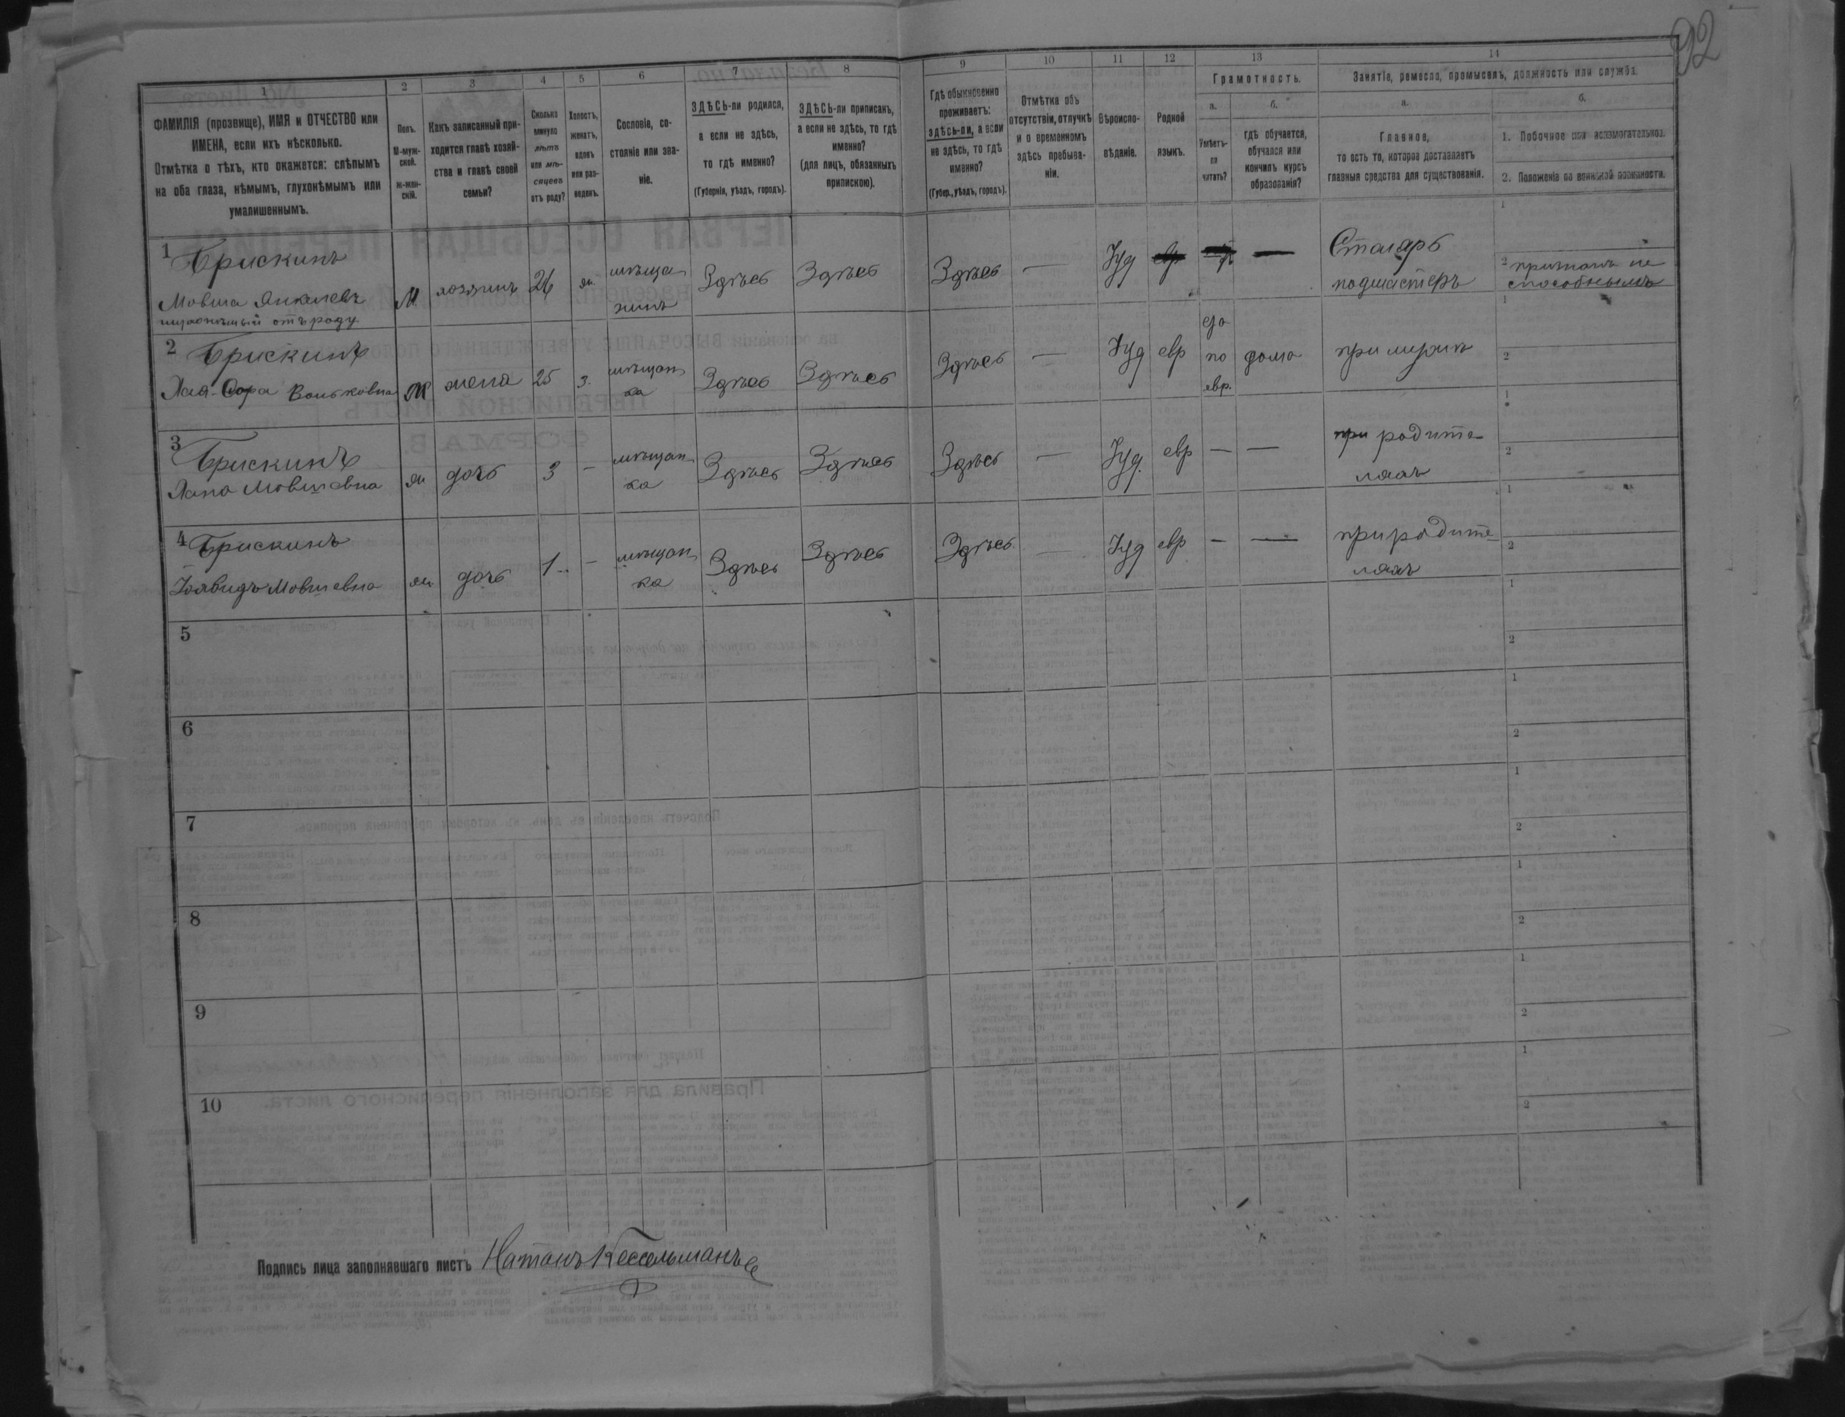 92
1 2 3 4 5 6 7 8 9 10 11 12 13 14
ФАМИЛІЯ (прозвище), ИМЯ и ОТЧЕСТВО или
ИМЕНА, если ихъ нѣсколько.
Отмѣтка о тѣхъ, кто окажется: слѣпымъ
на оба глаза, нѣмымъ, глухонѣмымъ или
умалишеннымъ.
Полъ.
М-муж-
ской.
ж-жен-
скій.
Какъ записанный при-
ходится главѣ хозяй-
ства и главѣ своей
семьи?
Сколько
минуло
лѣтъ
или мѣ-
сяцевъ
отъ роду?
Холостъ,
женатъ,
вдовъ
или раз-
веденъ.
Сословіе, со-
стояніе или зва-
ніе.
ЗДѢСЬ-ли родился,
а если не здѣсь,
то гдѣ именно?
(Губернія, уѣздъ, городъ).
ЗДѢСЬ-ли приписанъ,
а если не здѣсь, то гдѣ
именно?
(для лицъ, обязанныхъ
припискою).
Гдѣ обыкновенно
проживаетъ:
здѣсь-ли, а если
не здѣсь, то гдѣ
именно?
(Губер., уѣздъ, городъ).
Отмѣтка объ
отсутствіи, отлучкѣ
и о временномъ
здѣсь пребыва-
ніи.
Вѣроиспо-
вѣданіе.
Родной
языкъ.
Грамотность.
а.
Умѣетъ-
ли
читать?
б.
гдѣ обучается,
обучался или
кончилъ курсъ
образованія?
Занятіе, ремесло, промыселъ, должность или служба.
а.
Главное,
то есть то, которое доставляетъ
главныя средства для существованія.
б.
1. Побочное или вспомогательное.
2. Положеніе по воинской повинности.
1 Брискинъ
Мовша Янкелевъ
глухонѣмый отъ роду
М хозяинъ 26 ж мѣща-
нинъ
Здѣсь Здѣсь Здѣсь — Іуд —
Столяръ
подмастеръ
1
2 признанъ не
способнымъ
2 Брискинъ
Хая-Сора Вольковна
ж жена 25 з. мѣщан-
ка
Здѣсь Здѣсь Здѣсь — Іуд евр
да
по
евр.
дома
при мужѣ
1
2
3 Брискинъ
Хана Мовшевна
ж дочь 3 — мѣщан-
ка
Здѣсь Здѣсь Здѣсь — Іуд. евр — —
при родите-
ляхъ
1
2
4 Брискинъ
Мовшевна
ж дочь 1 — мѣщан-
ка
Здѣсь Здѣсь Здѣсь — Іуд евр — —
при родите-
ляхъ
1
2
5
1
2
6
1
2
7
1
2
8
1
2
9
1
2
10
1
2
Подпись лица заполнявшаго листъ Натанъ Кессельманъ